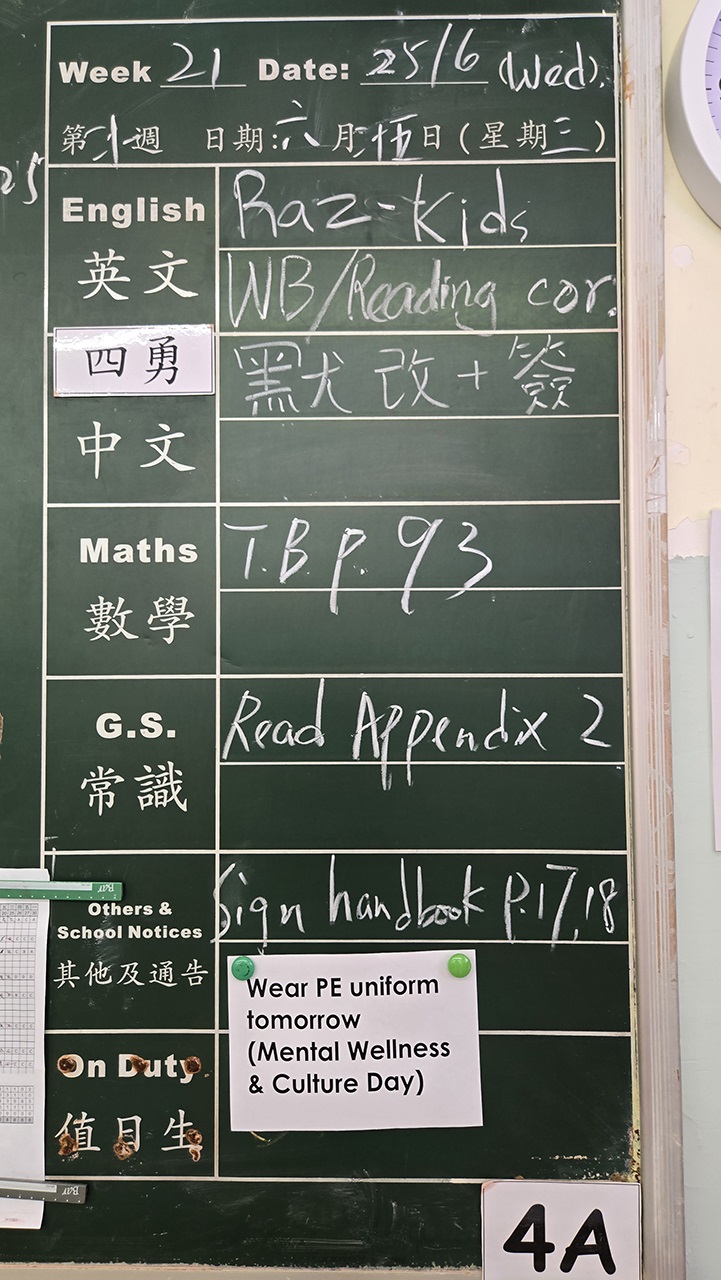 Week 21 Date: 25/6 (Wed).
第廿週 日期:六月廿五日(星期三)
25
English
英文
Raz-Kids
WB/Reading cor.
四勇
中文
默犬 改 + 簽
Maths
數學
T.B. p. 93
G.S.
常識
Read Appendix 2
Others &
School Notices
其他及通告
Sign handbook p.17,18
Wear PE uniform
tomorrow
(Mental Wellness
& Culture Day)
On Duty
值日生
4A